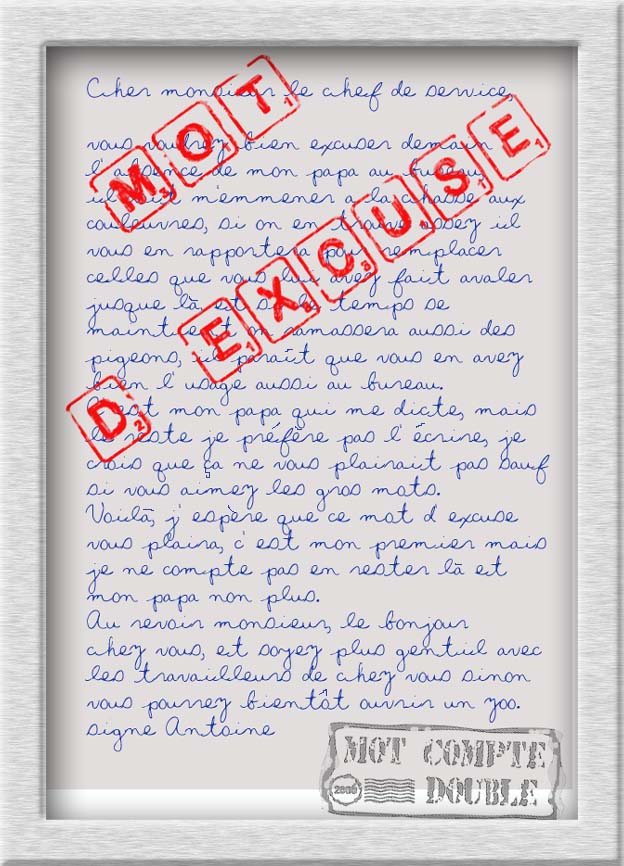 Cher monsieur le chef de service,
vous voudrez bien excuser demain
l'absence de mon papa au bureau,
il doit m'emmener a la chasse aux
couleuvres, si on en trouve assez il
vous en rapportera pour remplacer
celles que vous lui avez fait avaler
jusque là, et si le temps se
maintient on ramassera aussi des
pigeons, il paraît que vous en avez
bien l'usage aussi au bureau.
C'est mon papa qui me dicte, mais
le reste je préfère pas l'écrire, je
crois que ça ne vous plairait pas sauf
si vous aimez les gros mots.
Voilà, j'espère que ce mot d excuse
vous plaira, c'est mon premier mais
je ne compte pas en rester là et
mon papa non plus.
Au revoir monsieur, le bonjour
chez vous, et soyez plus gentil avec
les travailleurs de chez vous sinon
vous pourrez bientôt ouvrir un zoo.
signe Antoine
MOT
D EXCUSE
MOT COMPTE
DOUBLE